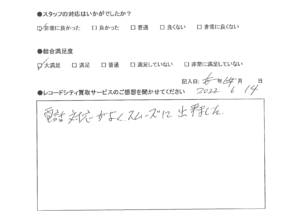 ●スタッフの対応はいかがでしたか？
☑非常に良かった □良かった □普通 □良くない □非常に良くない
●総合満足度
☑大満足 □満足 □普通 □満足していない □非常に満足していない
記入日: 年 月 日
2022 6 14
●レコードシティ買取サービスのご感想を聞かせてください
電話対応がよくスムーズに出来ました